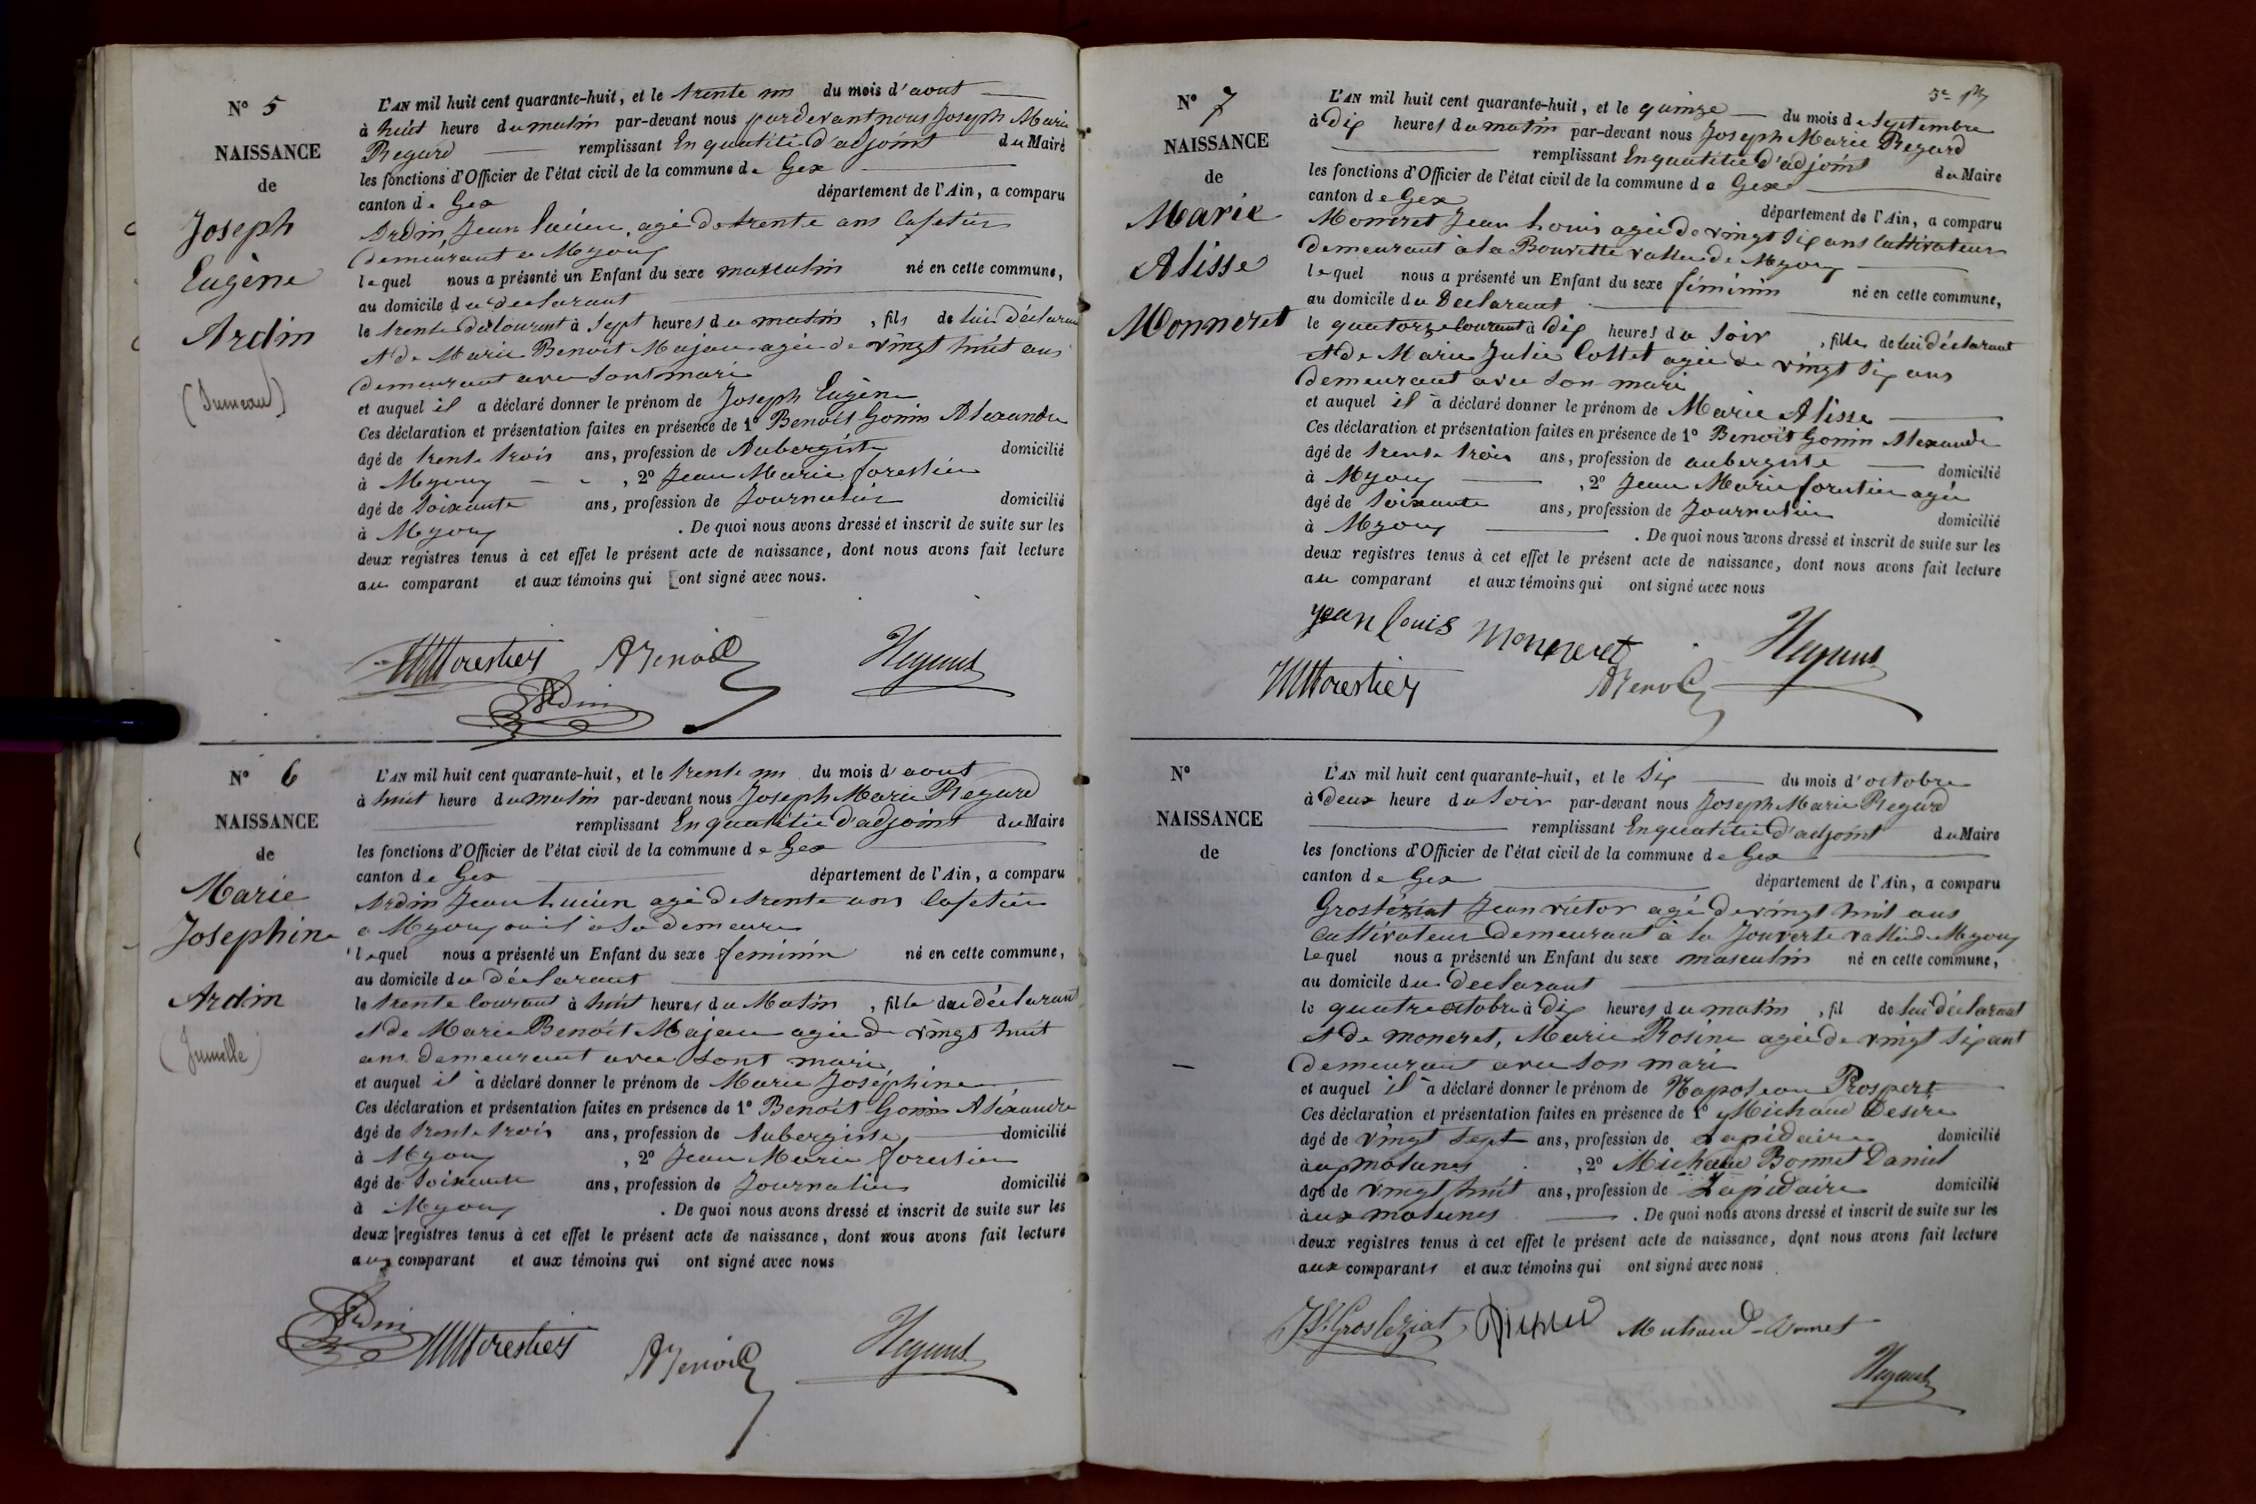 N° 5
NAISSANCE
de
Joseph
Eugène
Ardin
(Jumeau)
L'AN mil huit cent quarante-huit, et le trente un du mois d'aout
à huit heure du matin par-devant nous pardevant nous Joseph Marie
Regard remplissant En qualitié d'adjoint du Maire
les fonctions d'Officier de l'état civil de la commune de Gex
canton de Gex département de l'Ain, a comparu
Ardin, Jean Lucien, agé de trente ans Cafetier
demeurant a Myoux
lequel nous a présenté un Enfant du sexe masculin né en cette commune,
au domicile du declarant
le trente du Courant à Sept heures du matin, fils de lui Déclarant
et de Marie Benoit Majeau agée de vingt huit ans
demeurant avec sont mari
et auquel il a déclaré donner le prénom de Joseph Eugène
Ces déclaration et présentation faites en présence de 1° Benoit Gonin Alexandre
âgé de trente trois ans, profession de Aubergiste domicilié
à Myoux, 2° Jean Marie forestier
âgé de Soixante ans, profession de Journalier domicilié
à Myoux. De quoi nous avons dressé et inscrit de suite sur les
deux registres tenus à cet effet le présent acte de naissance, dont nous avons fait lecture
au comparant et aux témoins qui ont signé avec nous.
forestier ABenoit Regard
Ardin
N° 6
NAISSANCE
de
Marie
Josephine
Ardin
(Jumelle)
L'AN mil huit cent quarante-huit, et le trente un du mois d'aout
à huit heure du matin par-devant nous Joseph Marie Regard
remplissant En qualitié d'adjoint du Maire
les fonctions d'Officier de l'état civil de la commune de Gex
canton de Gex département de l'Ain, a comparu
Ardin Jean Lucien agé de trente ans Cafetier
a Myoux à sa demeure
lequel nous a présenté un Enfant du sexe feminin né en cette commune,
au domicile du déclarant
le trente Courant à huit heures du Matin, fille du déclarant
et de Marie Benoit Majeau agée de vingt huit
ans demeurant avec sont mari
et auquel il a déclaré donner le prénom de Marie Joséphine
Ces déclaration et présentation faites en présence de 1° Benoit Gonin Aléxandre
âgé de trente trois ans, profession de Aubergiste, domicilié
à Myoux, 2° Jean Marie forestier
âgé de Soixante ans, profession de Journalier domicilié
à Myoux. De quoi nous avons dressé et inscrit de suite sur les
deux registres tenus à cet effet le présent acte de naissance, dont nous avons fait lecture
aux comparant et aux témoins qui ont signé avec nous
Ardin forestier ABenoit Regard
3e
N° 7
NAISSANCE
de
Marie
Alisse
Monneret
L'AN mil huit cent quarante-huit, et le quinze du mois de Septembre
à dix heures du matin par-devant nous Joseph Marie Regard
remplissant En qualitié d'adjoint du Maire
les fonctions d'Officier de l'état civil de la commune de Gex
canton de Gex département de l'Ain, a comparu
Moneret Jean Louis agée de vingt six ans Cultivateur
demeurant à la Bourette vallée de Myoux
lequel nous a présenté un Enfant du sexe féminin né en cette commune,
au domicile du Declarant
le quatorze Courant à dix heures du Soir, fille de lui déclarant
et de Marie Julie Cottet agée de vingt six ans
demeurant avec son mari
et auquel il a déclaré donner le prénom de Marie Alisse
Ces déclaration et présentation faites en présence de 1° Benoit Gonin Alexandre
âgé de trente trois ans, profession de aubergiste domicilié
à Myoux, 2° Jean Marie forestier agée
âgé de Soixante ans, profession de Journalier domicilié
à Myoux. De quoi nous avons dressé et inscrit de suite sur les
deux registres tenus à cet effet le présent acte de naissance, dont nous avons fait lecture
au comparant et aux témoins qui ont signé avec nous
jean louis moneret Regard
forestier ABenoit
N°
NAISSANCE
de
L'AN mil huit cent quarante-huit, et le Six du mois d'octobre
à deux heure du Soir par-devant nous Joseph Marie Regard
remplissant En qualitié d'adjoint du Maire
les fonctions d'Officier de l'état civil de la commune de Gex
canton de Gex département de l'Ain, a comparu
Grosféziat Jean victor agé de vingt huit ans
Cultivateur Demeurant à la Jouverte vallée de Myoux
Lequel nous a présenté un Enfant du sexe masculin né en cette commune,
au domicile du declarant
le quatre octobre à dix heures du matin, fil de lui déclarant
et de moneret, Marie Rosine agée de vingt six ant
demeurant avec son mari
et auquel il a déclaré donner le prénom de Napoleon Prospert
Ces déclaration et présentation faites en présence de 1° Michaud Desire
âgé de vingt sept ans, profession de Lapidaire domicilié
aux molunes, 2° Michaud Bonnet Daniel
âgé de vingt huit ans, profession de Lapidaire domicilié
aux molunes. De quoi nous avons dressé et inscrit de suite sur les
deux registres tenus à cet effet le présent acte de naissance, dont nous avons fait lecture
aux comparants et aux témoins qui ont signé avec nous
Grosfeziat Michaud-Bonnet
Regard